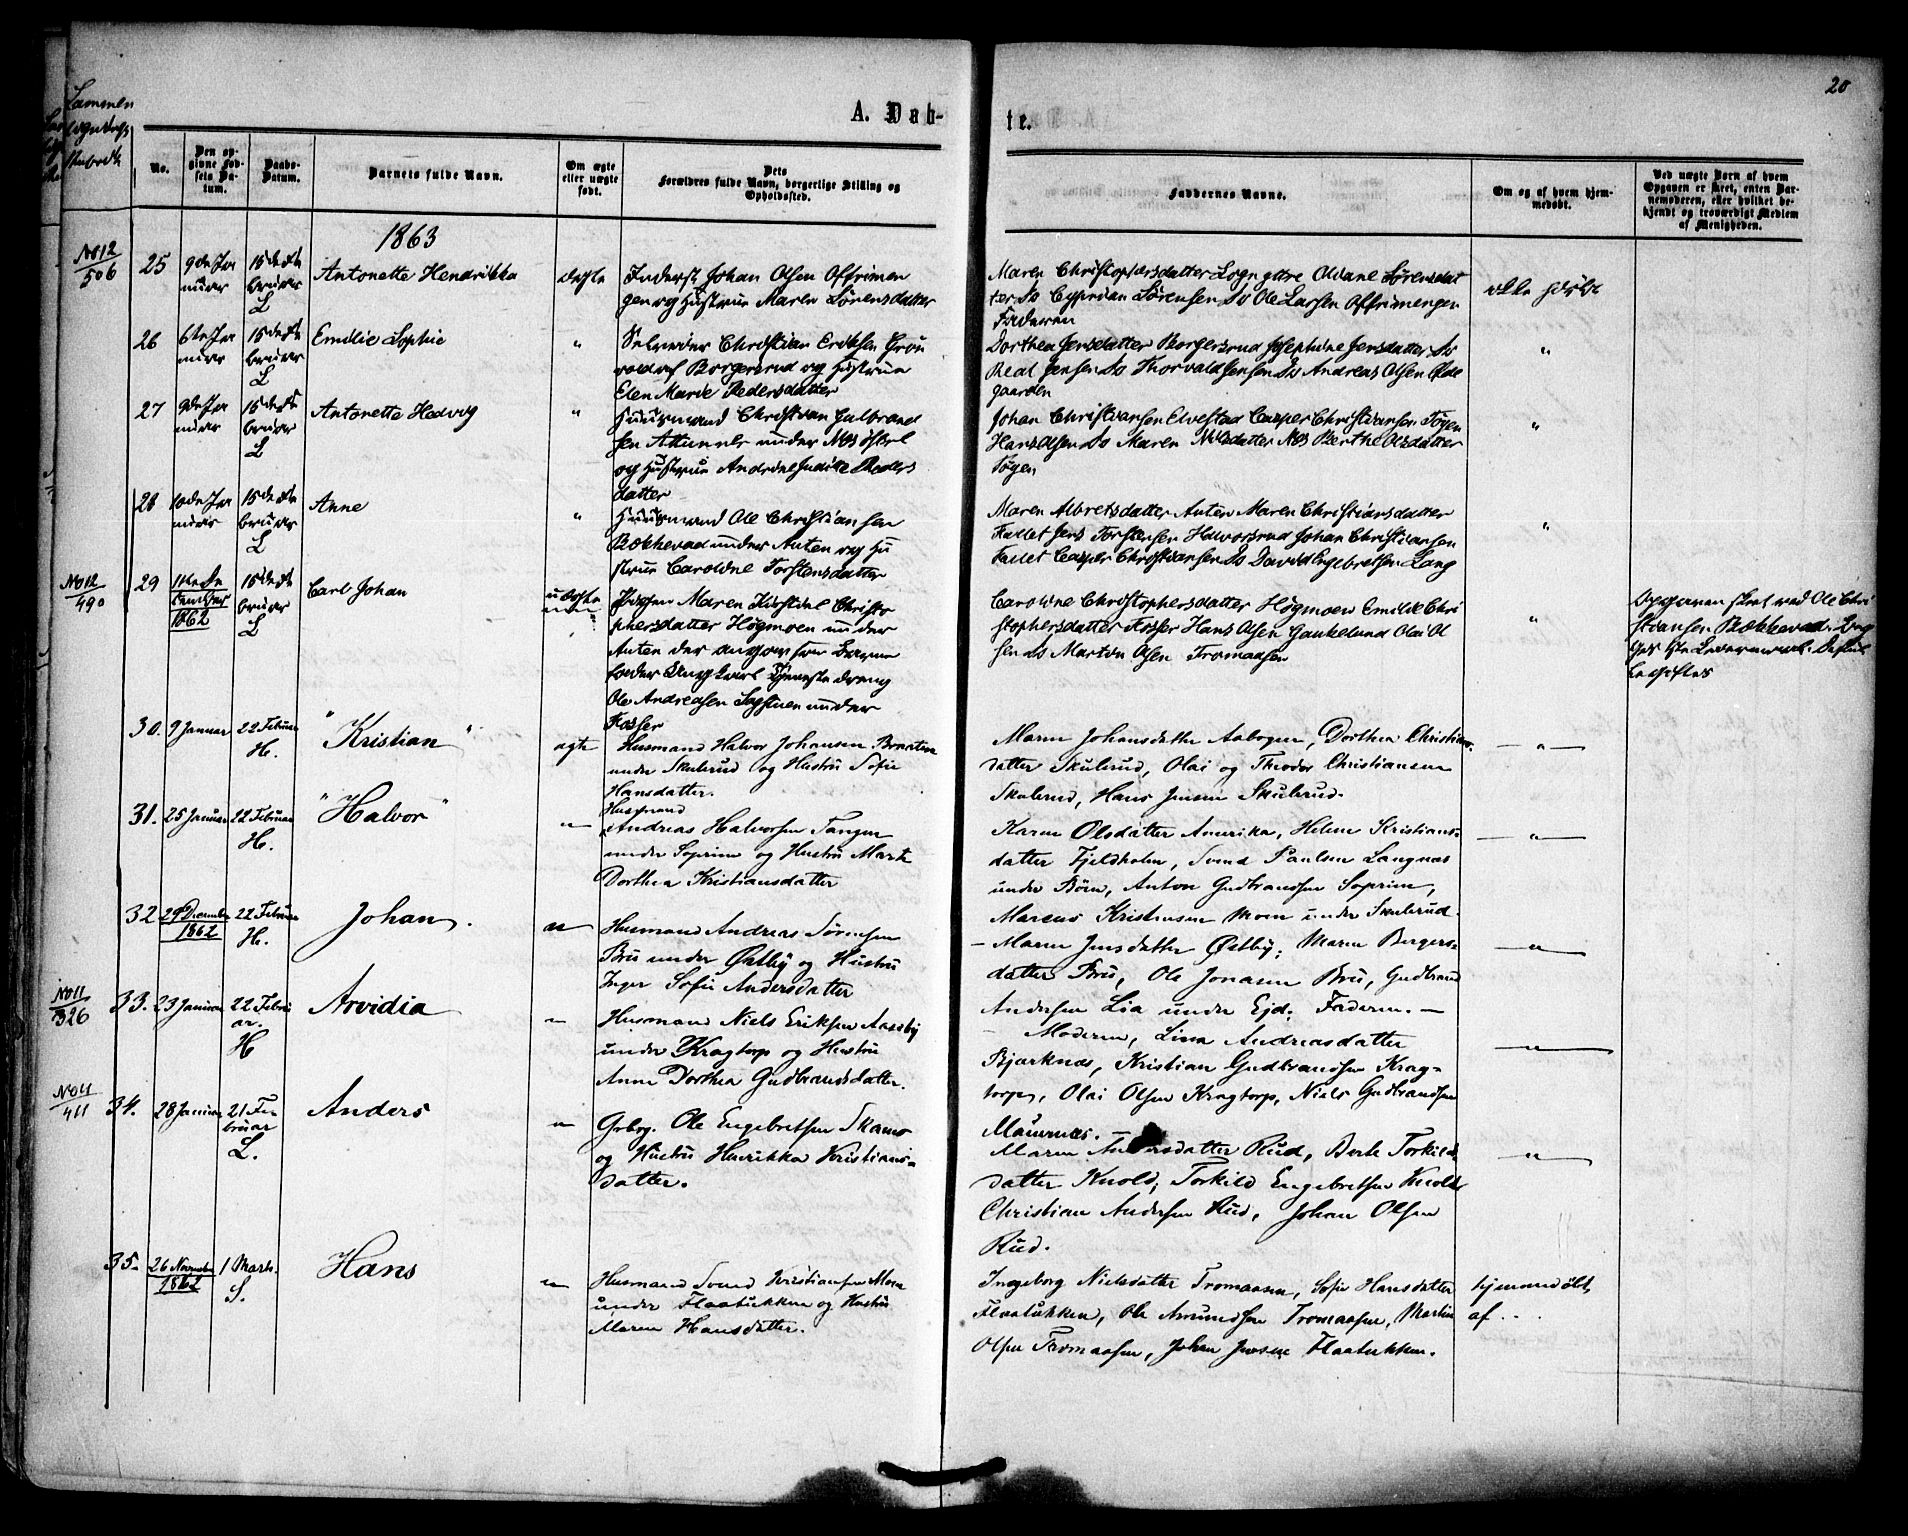 20
A. Døb-
te.
No.
Den opgivne Fødsels Datum.
Daabs-Datum.
Barnets fulde Navn.
Om ægte eller uægte født.
Dets Forældres fulde Navn, borgerlige Stilling og Opholdssted.
Faddernes Navne.
Om og af hvem hjemmedøbt.
Ved uægte Børn af hvem Opgaven er skeet, enten Barnemoderen, eller hvilket bekjendt og troværdigt Medlem af Menigheden.
1863
No 12
506
25
9de Januar
15de Februar
L
Antonette Hendrikka
ægte
Inderst Johan Olsen
og Hustrue Maren Sørensdatter
Maren Christophersdatter Oldane Sørensdat
ter Do Cyprian Sørensen Do Ole Larsen
Faderen
ikke hjemdøbt
26
6te Januar
15de Februar
L
Emilie Sophie
"
Selveier Christian Eriksen
af Borgersrud og Hustrue
Elen Marie Pedersdatter
Dorthea Jensdatter Borgersrud Josephine Jensdatter Do
Jensen Do Thorvald Jensen Do Andreas Olsen Øde
gaarden
"
27
9de Januar
15de Februar
L
Antonette Hedvig
"
Huusmand Christian Gulbrand
sen under Næs
og Hustrue Andrine Judithe Peders
datter
Johan Christiansen Elvestad Casper Christiansen Togen
Hans Olsen Do Maren Nilsdatter Næs Berthe Olsdatter
Togen
"
28
10de Januar
15de Februar
L
Anne
"
Huusmand Ole Christiansen
Bækkevad under Anten og Hu
strue Caroline Torstensdatter
Maren Albretsdatter Anten Maren Christiansdatter
Fallet Jens Torstensen Halvorsrud Johan Christiansen
Fallet Casper Christiansen Do David Engebretsen Lang
"
No 12
490
29
11te December
1862
15de Februar
L
Carl Johan
uægte
Pigen Maren Kirstine Christo
phersdatter Høgmoen under
Anten der angav som Barne
fader Ungkarl Tjenestedreng
Ole Andreasen Sagstuen under
Fosser
Caroline Christophersdatter Høgmoen Emilie Chri
stophersdatter Fosser Hans Olsen Gaukelund Olai Ol
sen Do Martin Olsen Tromaasen
"
Opgaven skeet ved Ole Chri
stiansen Bækkevad.
30.
9 Januar
22 Februar
H.
"Kristian"
ægte
Husmand Halvor Johansen Braaten
under Skulerud og Hustru Sofie
Hansdatter.
Maren Johansdatter Aabogen, Dorthea Christians-
datter Skulerud, Olai og Theodor Christiansen
Skulerud, Hans Jensen Skulerud.
— " —
31.
25 Januar
22 Februar
H.
"Halvor"
— " —
Husmand
Andreas Halvorsen Tangen
under Soprim og Hustru Marte
Dorthea Kristiansdatter
Karen Olsdatter Amerika, Helene Kristians-
datter Fjeldholm, Svend Paulsen Langnæs
under Børn, Anton Gudbrandsen Soprim,
Marcus Kristensen Moen under Skulerud.
— " —
32
29 December
1862
22 Februar
H.
Johan.
— " —
Husmand Andreas Sørensen
Bru under Østby og Hustru
Inger Sofie Andersdatter
— Maren Jensdatter Østby, Maren Bergers-
datter Bru, Ole Jonasen Bru, Gudbrand
Andersen Lia under Ejd. Faderen. —
— " —
No 11
326
33.
23 Januar
22 Februar.
H
Arvidia
— " —
Husmand Niels Eriksen Aaseby
under Kragtorp og Hustru
Anne Dorthea Gudbrandsdatter.
— Moderen, Lina Andreasdatter
Bjørknæs, Kristian Gudbrandsen Krag-
torp, Olai Olsen Kragtorp, Niels Gudbrandsen
Maurnæs.
— " —
No 11
411
34.
28 Januar
21 Februar
L.
Anders
— " —
Grbrg. Ole Engebretsen Skamo
og Hustru Henrikka Kristians-
datter.
Maren Andersdatter Rud, Berte Torkilds
datter Knold, Torkild Engebretsen Knold,
Christian Andersen Rud, Johan Olsen
Rud.
— " —
35.
26 November
1862
1 Marts.
S.
Hans
— " —
Husmand Svend Kristiansen Moen
under Flaatukken og Hustru
Maren Hansdatter.
Ingeborg Nielsdatter Tromaasen, Sofie Hansdatter
Flaatukken, Ole Amundsen Tromaasen, Martin
Olsen Tromaasen, Johan Jensen Flaatukken.
hjemmedøbt,
af . . .